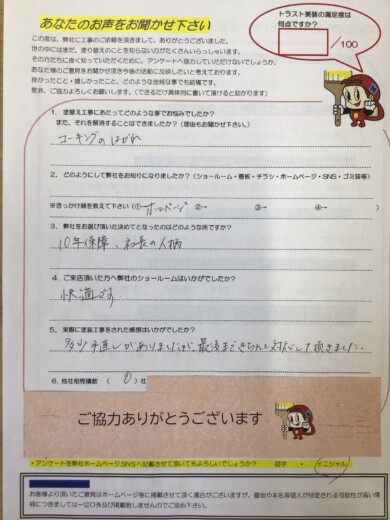 あなたのお声をお聞かせ下さい
トラスト美装の満足度は
何点ですか？
/100
この度は、弊社に工事のご依頼を頂きまして、ありがとうございました。
世の中にはまだ、塗り替えのことを知らない方がたくさんいらっしゃいます。
その方たちに良く知っていただくために、アンケートへ協力していただけないでしょうか。
あなた様のご意見をお聞かせ頂き今後の活動に反映したいと考えております。
良かったこと・嬉しかったこと、どのような些細な事でも結構です。
是非、ご協力よろしくお願いします。（できるだけ具体的に書いて頂けると助かります）
1．塗替え工事にあたってどのような事でお悩みでしたか？
また、それを解消することはできましたか？（理由もお聞かせ下さい。）
コーキングのはがれ
2．どのようにして弊社をお知りになりましたか？（ショールーム・看板・チラシ・ホームページ・SNS・ゴミ袋等）
※きっかけ順を教えて下さい（①→ホームページ ②→ ③→ ④→ ）
3．弊社をお選び頂いた決めてとなったのはどのような所ですか？
10年保障、社長の人柄
4．ご来店頂いた方へ弊社のショールームはいかがでしたか？
快適です
5．実際に塗装工事をされた感想はいかがでしたか？
多少手直しがありましたが、最後まできちんと対応して頂きました。
6．他社相見積数 （ ）社
ご協力ありがとうございます
・アンケートを弊社ホームページ,SNSへ記載させて頂いてもよろしいでしょうか？ 苗字 ・ イニシャル
お客様より頂いたご意見はホームページ等に掲載させて頂く場合がございますが、番地や本名等個人が特定される可能性が高い情
報につきましては一切公開及び掲載致しませんのでご安心下さい。